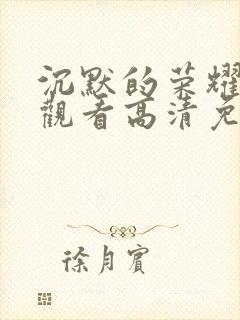 沉默的荣耀
觀看高清免
徐月賓